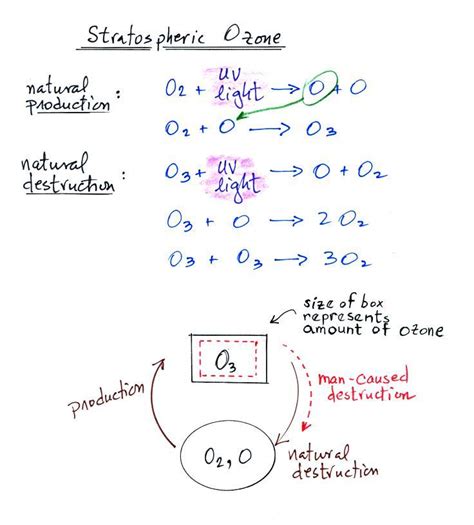 Stratospheric Ozone
natural production :
O2 + UV light → O + O
O2 + O → O3
natural destruction :
O3 + UV light → O + O2
O3 + O → 2 O2
O3 + O3 → 3 O2
size of box
represents
amount of ozone
O3
man-caused
destruction
production
O2, O
natural
destruction